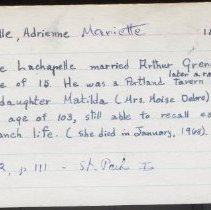 lle, Adrienne Mariette 1
e Lachapelle married Arthur Gren
later a ra
e of 15. He was a Portland Tavern
daughter Matilda (Mrs. Moise Dabro)
age of 103, still able to recall ea
anch life. (She died in January, 1968).
R, p 111 - St. Pauls I